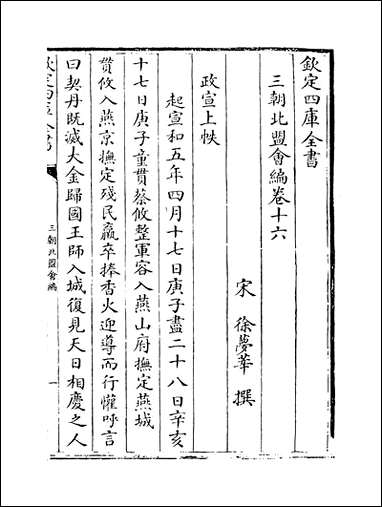 欽定四庫全書
三朝北盟會編卷十六
宋 徐夢莘 撰
政宣上帙
起宣和五年四月十七日庚子盡二十八日辛亥
十七日庚子童貫蔡攸整軍容入燕山府撫定燕城
貫攸入燕京撫定殘民羸卒捧香火迎導而行懽呼言
曰契丹既滅大金歸國王師入城復見天日相慶之人
欽定四庫全書
三朝北盟會編
一